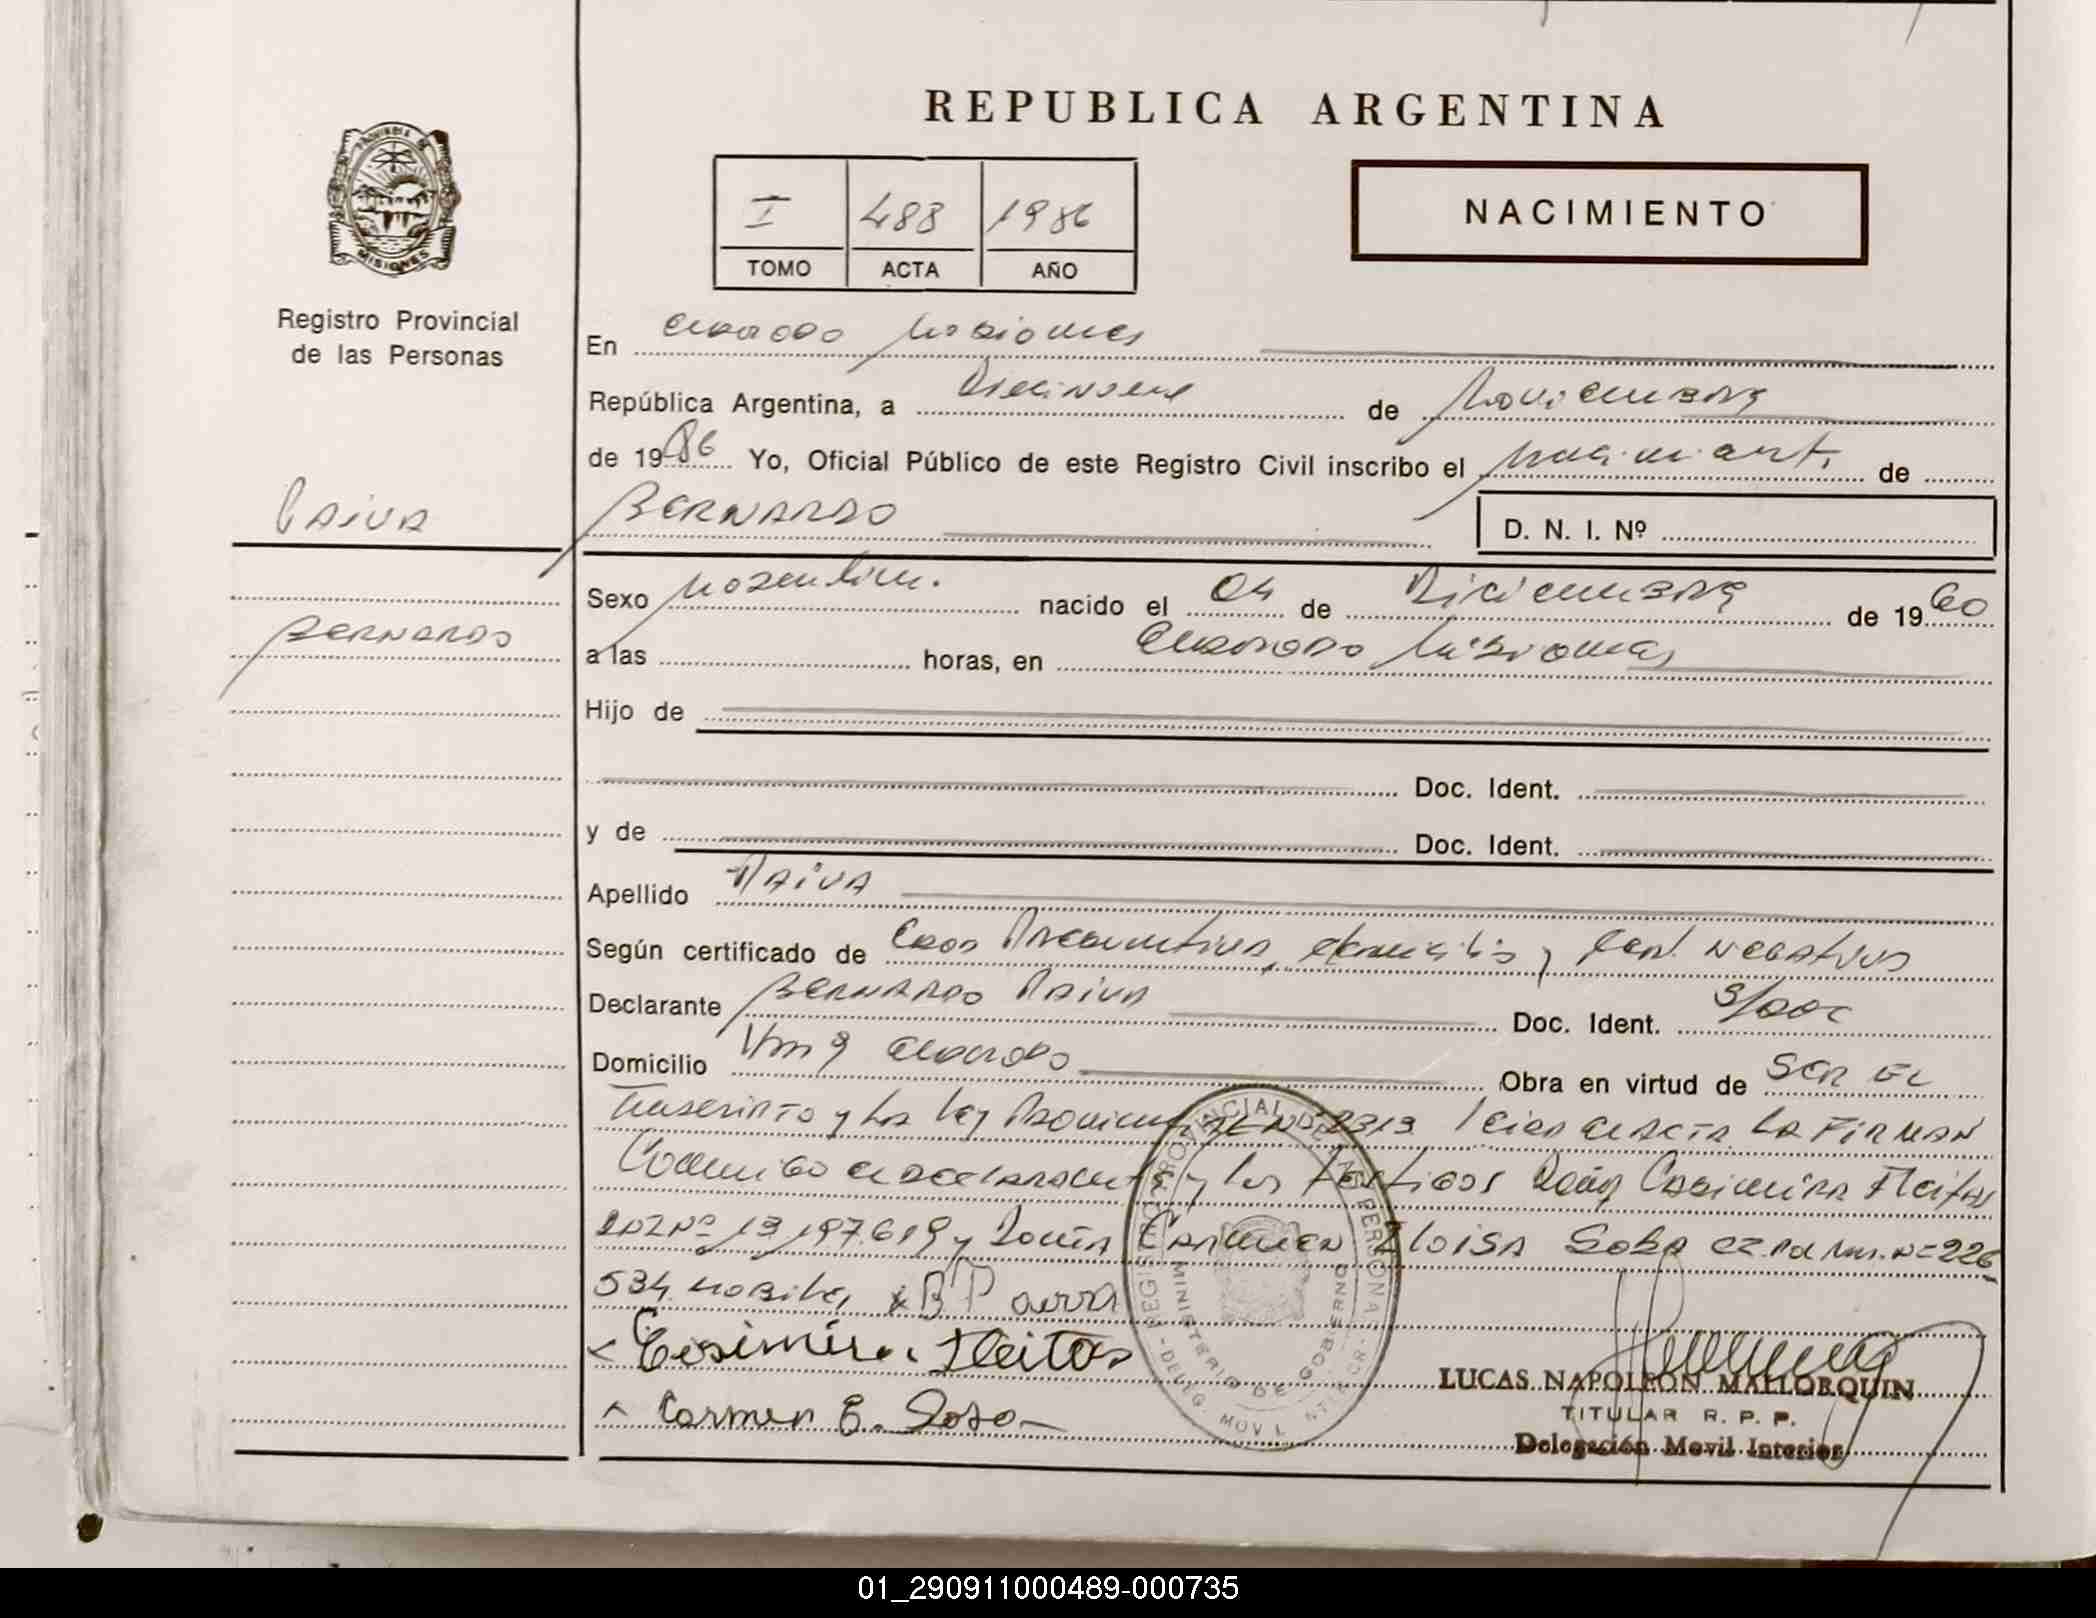 REPUBLICA ARGENTINA
PROVINCIA DE
MISIONES
Registro Provincial
de las Personas
I 488 1986
TOMO ACTA AÑO
NACIMIENTO
En Misiones
República Argentina, a Diecinueve de Noviembre
de 1986 Yo, Oficial Público de este Registro Civil inscribo el nacimiento de
PAIVA
BERNARDO
D. N. I. Nº
BERNARDO
Sexo Masculino nacido el 04 de Diciembre de 1960
a las horas, en Misiones
Hijo de
Doc. Ident.
y de Doc. Ident.
Apellido PAIVA
Según certificado de Edad Presuntiva, domicilio y Cert. Negativo
Declarante BERNARDO PAIVA Doc. Ident. S/DOC
Domicilio Obra en virtud de SER EL
Inscripto y La Ley Provincial Nº 2313 Leida el acta La FIRMAN
Conmigo el declarante y los Testigos Doña Casimira Fleitas
DNI Nº 13.197.619 y Doña CARMEN ELOISA SOSA Nº 226
534. x BP
Casimira Fleitas
Carmen E. Sosa
REGISTRO PROVINCIAL DE LAS PERSONAS
MINISTERIO DE GOBIERNO
DELEG. MOVIL
LUCAS NAPOLEON MALLORQUIN
TITULAR R. P. P.
Delegación Movil Interior
01_290911000489-000735